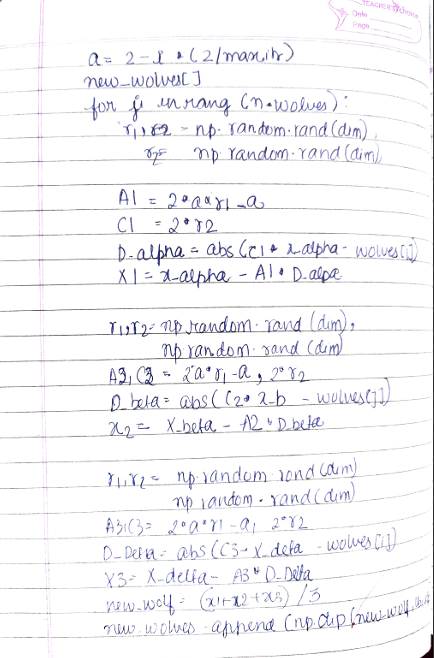 TEACHER'S Choice
Date
Page
a = 2 - l * (2/maxitr)
new_wolves[]
for j in rang (n-wolves):
r1, r2 = np. random. rand (dim),
r2= np random. rand (dim),
A1 = 2*a*r1 - a
C1 = 2*r2
D_alpha = abs (C1 * x_alpha - wolves[i])
X1 = x-alpha - A1 * D_alpa
r1,r2= np random. rand (dim),
np random. rand (dim)
A2, C2 = 2*a*r1 - a, 2*r2
D_beta = abs ((2* x-b - wolves[j])
x2 = X_beta - A2 * D_beta
r1, r2 = np. random rand (dim)
np random. rand (dim)
A3, C3 = 2*a*r1 - a, 2*r2
D_Delta = abs (C3 * X_delta - wolves[i])
X3 = X-delta - A3 * D_Delta
new_wolf = (x1+x2+x3) / 3
new_wolves . append (np. clip (new_wolf,